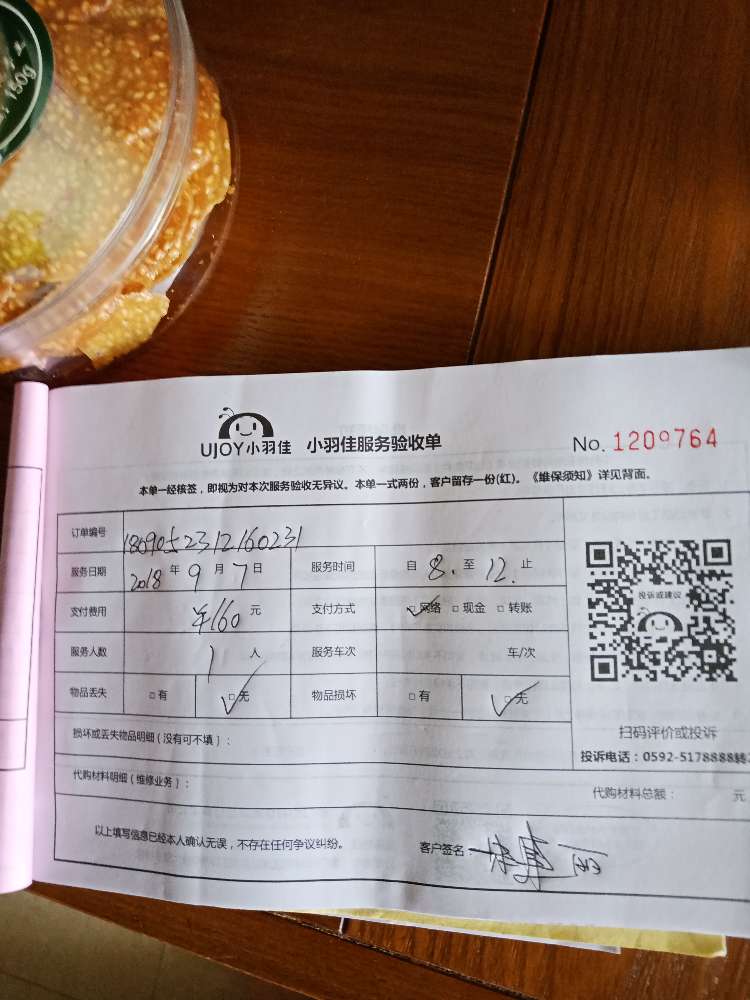 150g
UJOY小羽佳 小羽佳服务验收单 No. 1209764
本单一经核签，即视为对本次服务验收无异议。本单一式两份，客户留存一份(红)。《维保须知》详见背面。
订单编号 1809052312160231
服务日期 2018 年 9 月 7 日 服务时间 自 8. 至 12. 止
支付费用 ¥160 元 支付方式 □网络 □现金 □转账
服务人数 1 人 服务车次 车/次
物品丢失 □有 □无 物品损坏 □有 □无
投诉或建议
扫码评价或投诉
投诉电话：0592-5178888转
损坏或丢失物品明细（没有可不填）：
代购材料明细（维修业务）： 代购材料总额： 元
以上填写信息已经本人确认无误，不存在任何争议纠纷。 客户签名：